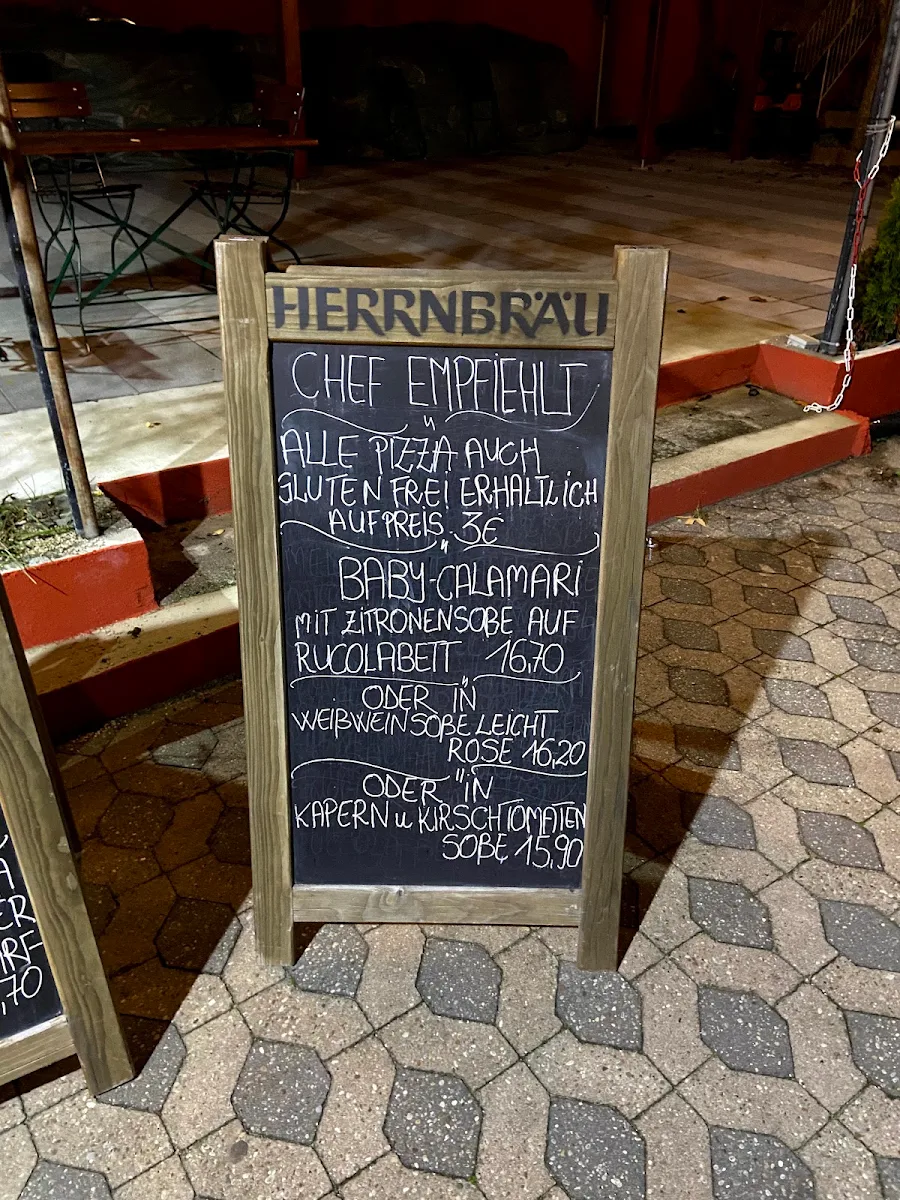 HERRNBRÄU
CHEF EMPFIEHLT
ALLE PIZZA AUCH
GLUTEN FREI ERHALTLICH
AUFPREIS 3€
BABY-CALAMARI
MIT ZITRONENSOßE AUF
RUCOLABETT 16,70
ODER IN
WEIßWEINSOßE LEICHT
ROSE 16,20
ODER IN
KAPERN u KIRSCHTOMATEN
SOßE 15,90
A
ER
,70